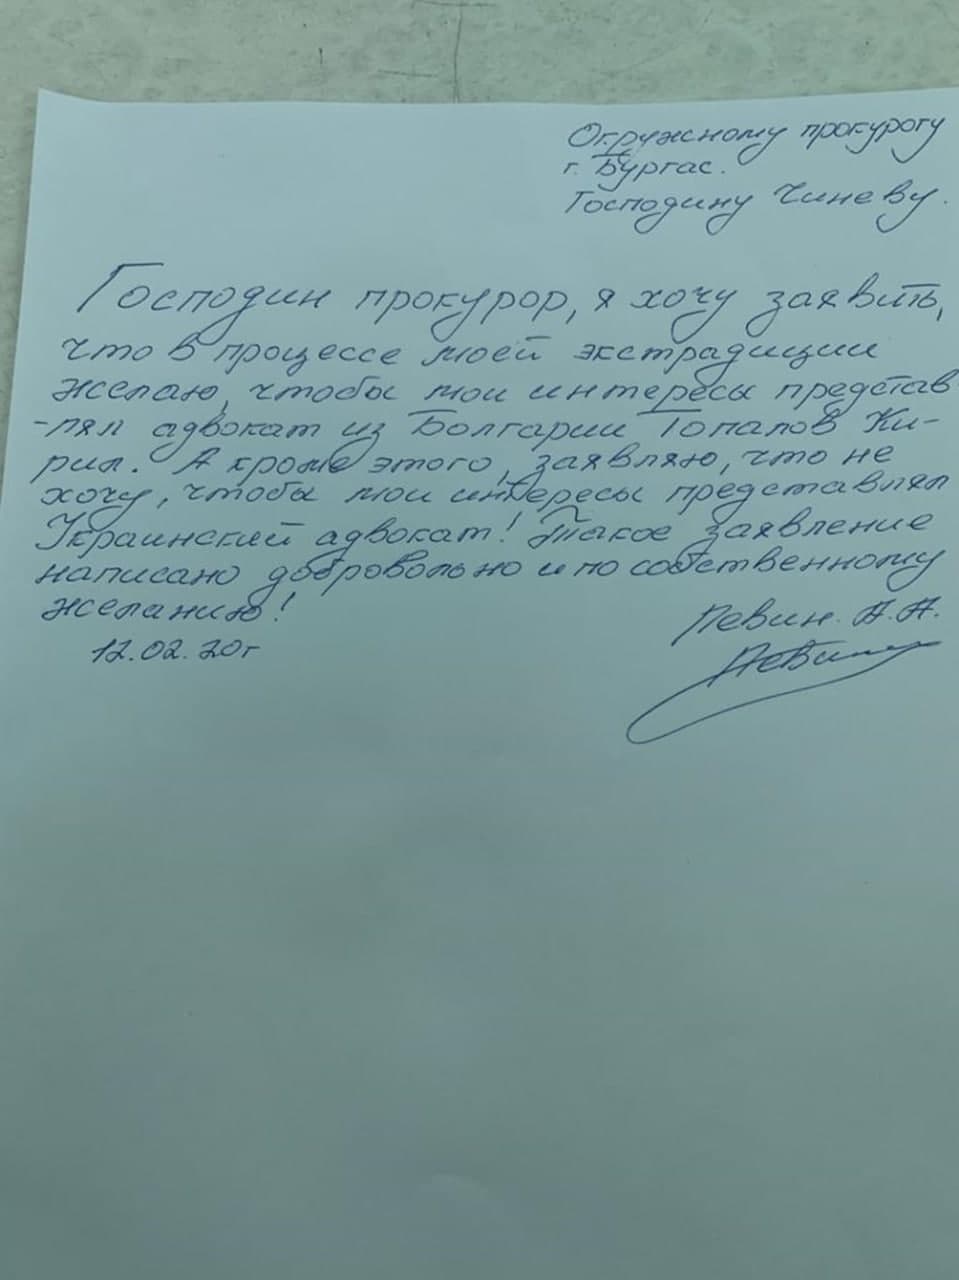 Окружному прокурору
г. Бургас.
Господину Чиневу.
Господин прокурор, я хочу заявить,
что в процессе моей экстрадиции
желаю, чтобы мои интересы представ
-лял адвокат из Болгарии Топалов Ки-
рил. А кроме этого, заявляю, что не
хочу, чтобы мои интересы представлял
Украинский адвокат! Такое заявление
написано добровольно и по собственному
желанию!
Левин. А.А.
12.02.20г